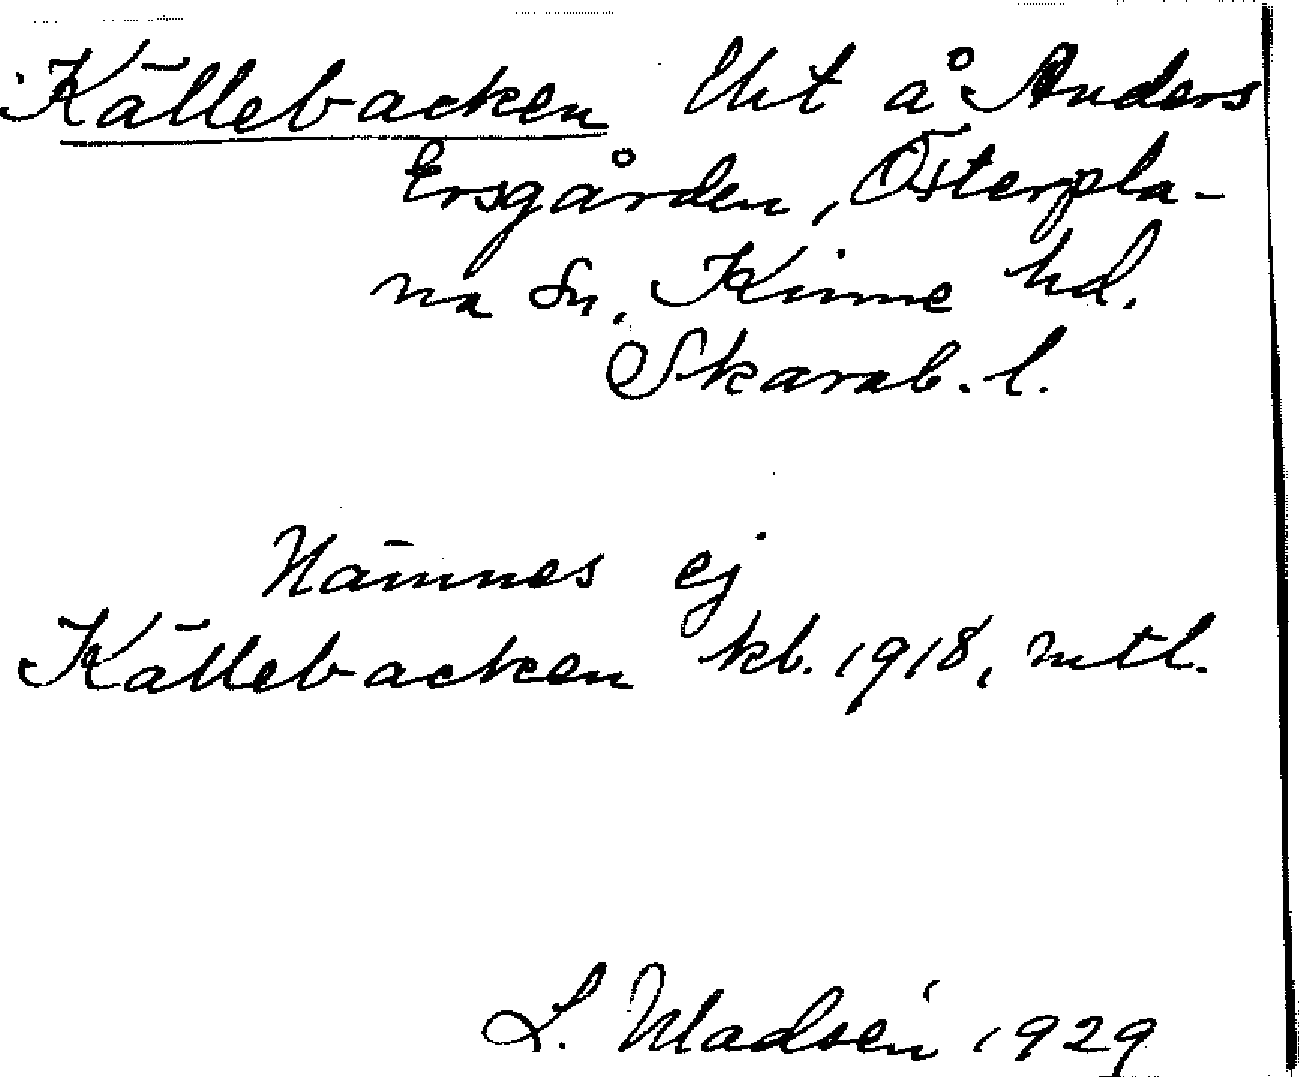 Källebacken Utj å Anders
Ersgården, Österpla-
na sn, Kinne hd.
Skarab. l.
Nämnes ej
Källebacken kb. 1918, mtl.
L. Madsén 1929